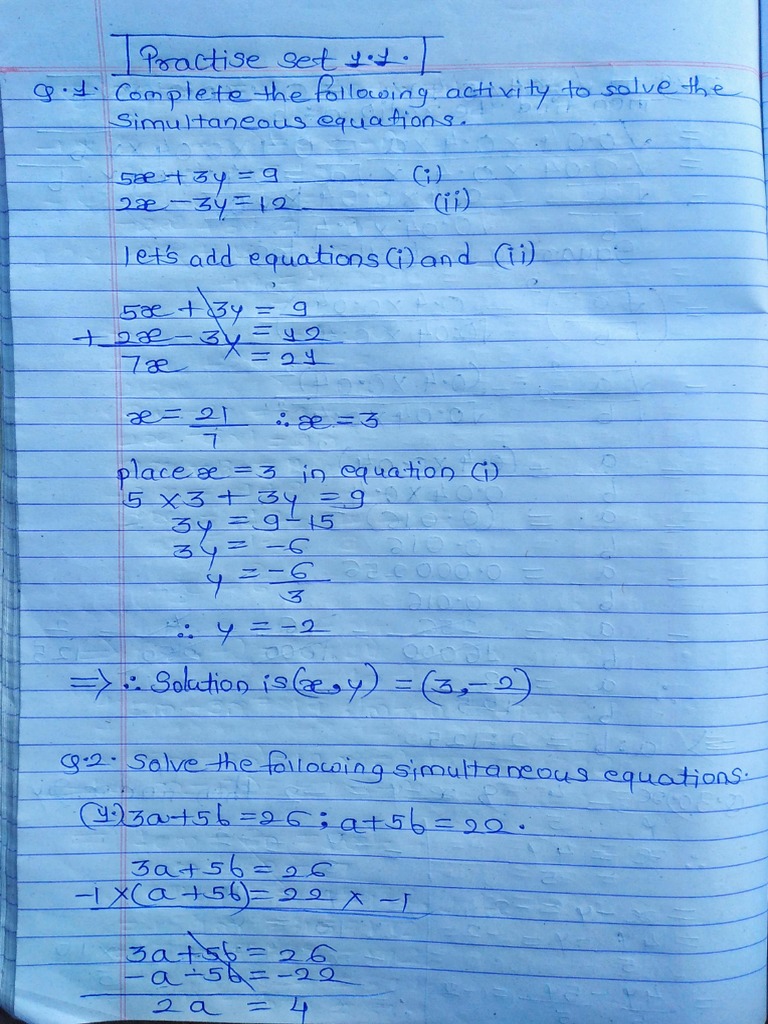 Practise set 1.1.
Q.1. Complete the following activity to solve the
simultaneous equations.
5x + 3y = 9 ———— (i)
2x - 3y = 12 ———— (ii)
let's add equations (i) and (ii)
5x + 3y = 9
+ 2x - 3y = 12
7x = 21
x = 21/7 ∴ x = 3
place x = 3 in equation (i)
5 × 3 + 3y = 9
3y = 9 - 15
3y = -6
y = -6/3
∴ y = -2
=> ∴ Solution is (x, y) = (3, -2)
Q.2. Solve the following simultaneous equations.
(1.) 3a + 5b = 26 ; a + 5b = 22.
3a + 5b = 26
-1 × (a + 5b) = 22 × -1
3a + 5b = 26
-a - 5b = -22
2a = 4